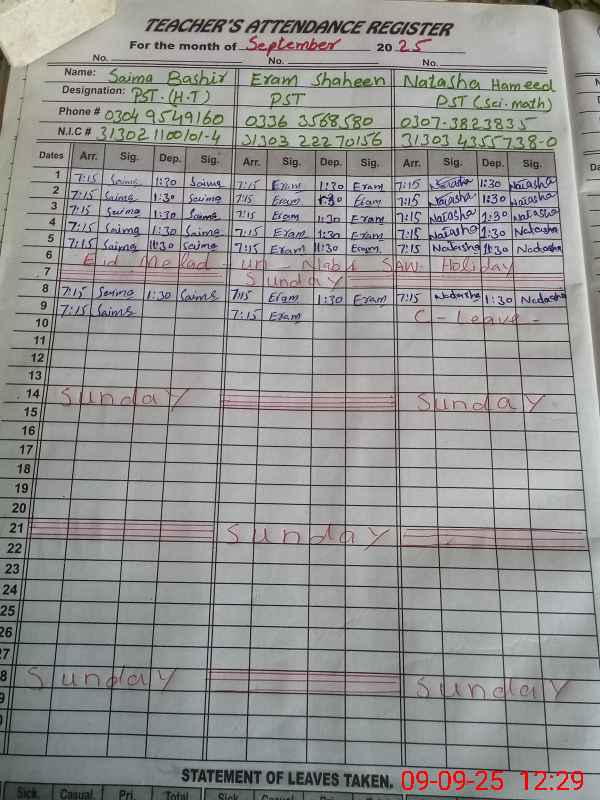 TEACHER'S ATTENDANCE REGISTER
For the month of September 2025
No. No. No.
Name: Saima Bashir Eram Shaheen Natasha Hameed
Designation: PST.(H.T) PST PST (Sci-math)
Phone # 0304 9549160 0336 3568580 0307-3823835
N.I.C # 31302 1100101-4 31303 22270156 31303 4355738-0
Dates Arr. Sig. Dep. Sig. Arr. Sig. Dep. Sig. Arr. Sig. Dep. Sig.
1 7:15 Saima 1:30 Saima 7:15 Eram 1:30 Eram 7:15 Natasha 1:30 Natasha
2 7:15 Saima 1:30 Saima 7:15 Eram 1:30 Eram 7:15 Natasha 1:30 Natasha
3 7:15 Saima 1:30 Saima 7:15 Eram 1:30 Eram 7:15 Natasha 1:30 Natasha
4 7:15 Saima 1:30 Saima 7:15 Eram 1:30 Eram 7:15 Natasha 1:30 Natasha
5 7:15 Saima 11:30 Saima 7:15 Eram 11:30 Eram 7:15 Natasha 11:30 Natasha
6 Eid Melad - un - Nabi SAW Holiday
7 Sunday
8 7:15 Saima 1:30 Saima 7:15 Eram 1:30 Eram 7:15 Natasha 1:30 Natasha
9 7:15 Saima 7:15 Eram C - Leave -
10
11
12
13
14 Sunday Sunday
15
16
17
18
19
20
21 Sunday
22
23
24
25
26
27
8 Sunday Sunday
9
0
STATEMENT OF LEAVES TAKEN.
09-09-25 12:29
Sick. Casual. Pri. Total Sick. Casual. Pri.